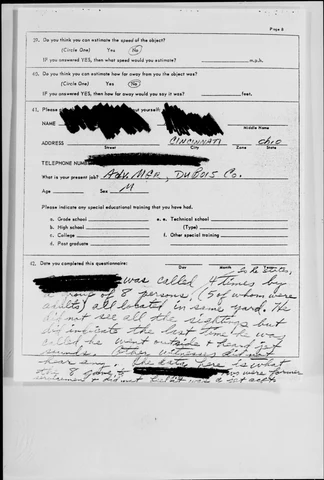 Page 8
39. Do you think you can estimate the speed of the object?
(Circle One) Yes No
IF you answered YES, then what speed would you estimate? m.p.h.
40. Do you think you can estimate how far away from you the object was?
(Circle One) Yes No
IF you answered YES, then how far away would you say it was? feet.
41. Please yourself:
NAME
Middle Name
ADDRESS CINCINNATI Ohio
Street City Zone State
TELEPHONE NUMBER
What is your present job? Adv. Mgr, DuBois Co.
Age Sex M
Please indicate any special educational training that you have had.
a. Grade school e. Technical school
b. High school (Type)
c. College f. Other special training
d. Post graduate
42. Date you completed this questionnaire:
Day Month Year
was called 4 times by
a group of 8 persons, (5 of whom were
adults) all located in same yard. He
did not see all the sightings but
did indicate the last time he was
called he went outside & heard jet
sounds. Other witnesses did not
hear any. The data here is what
the 8 gave to were former